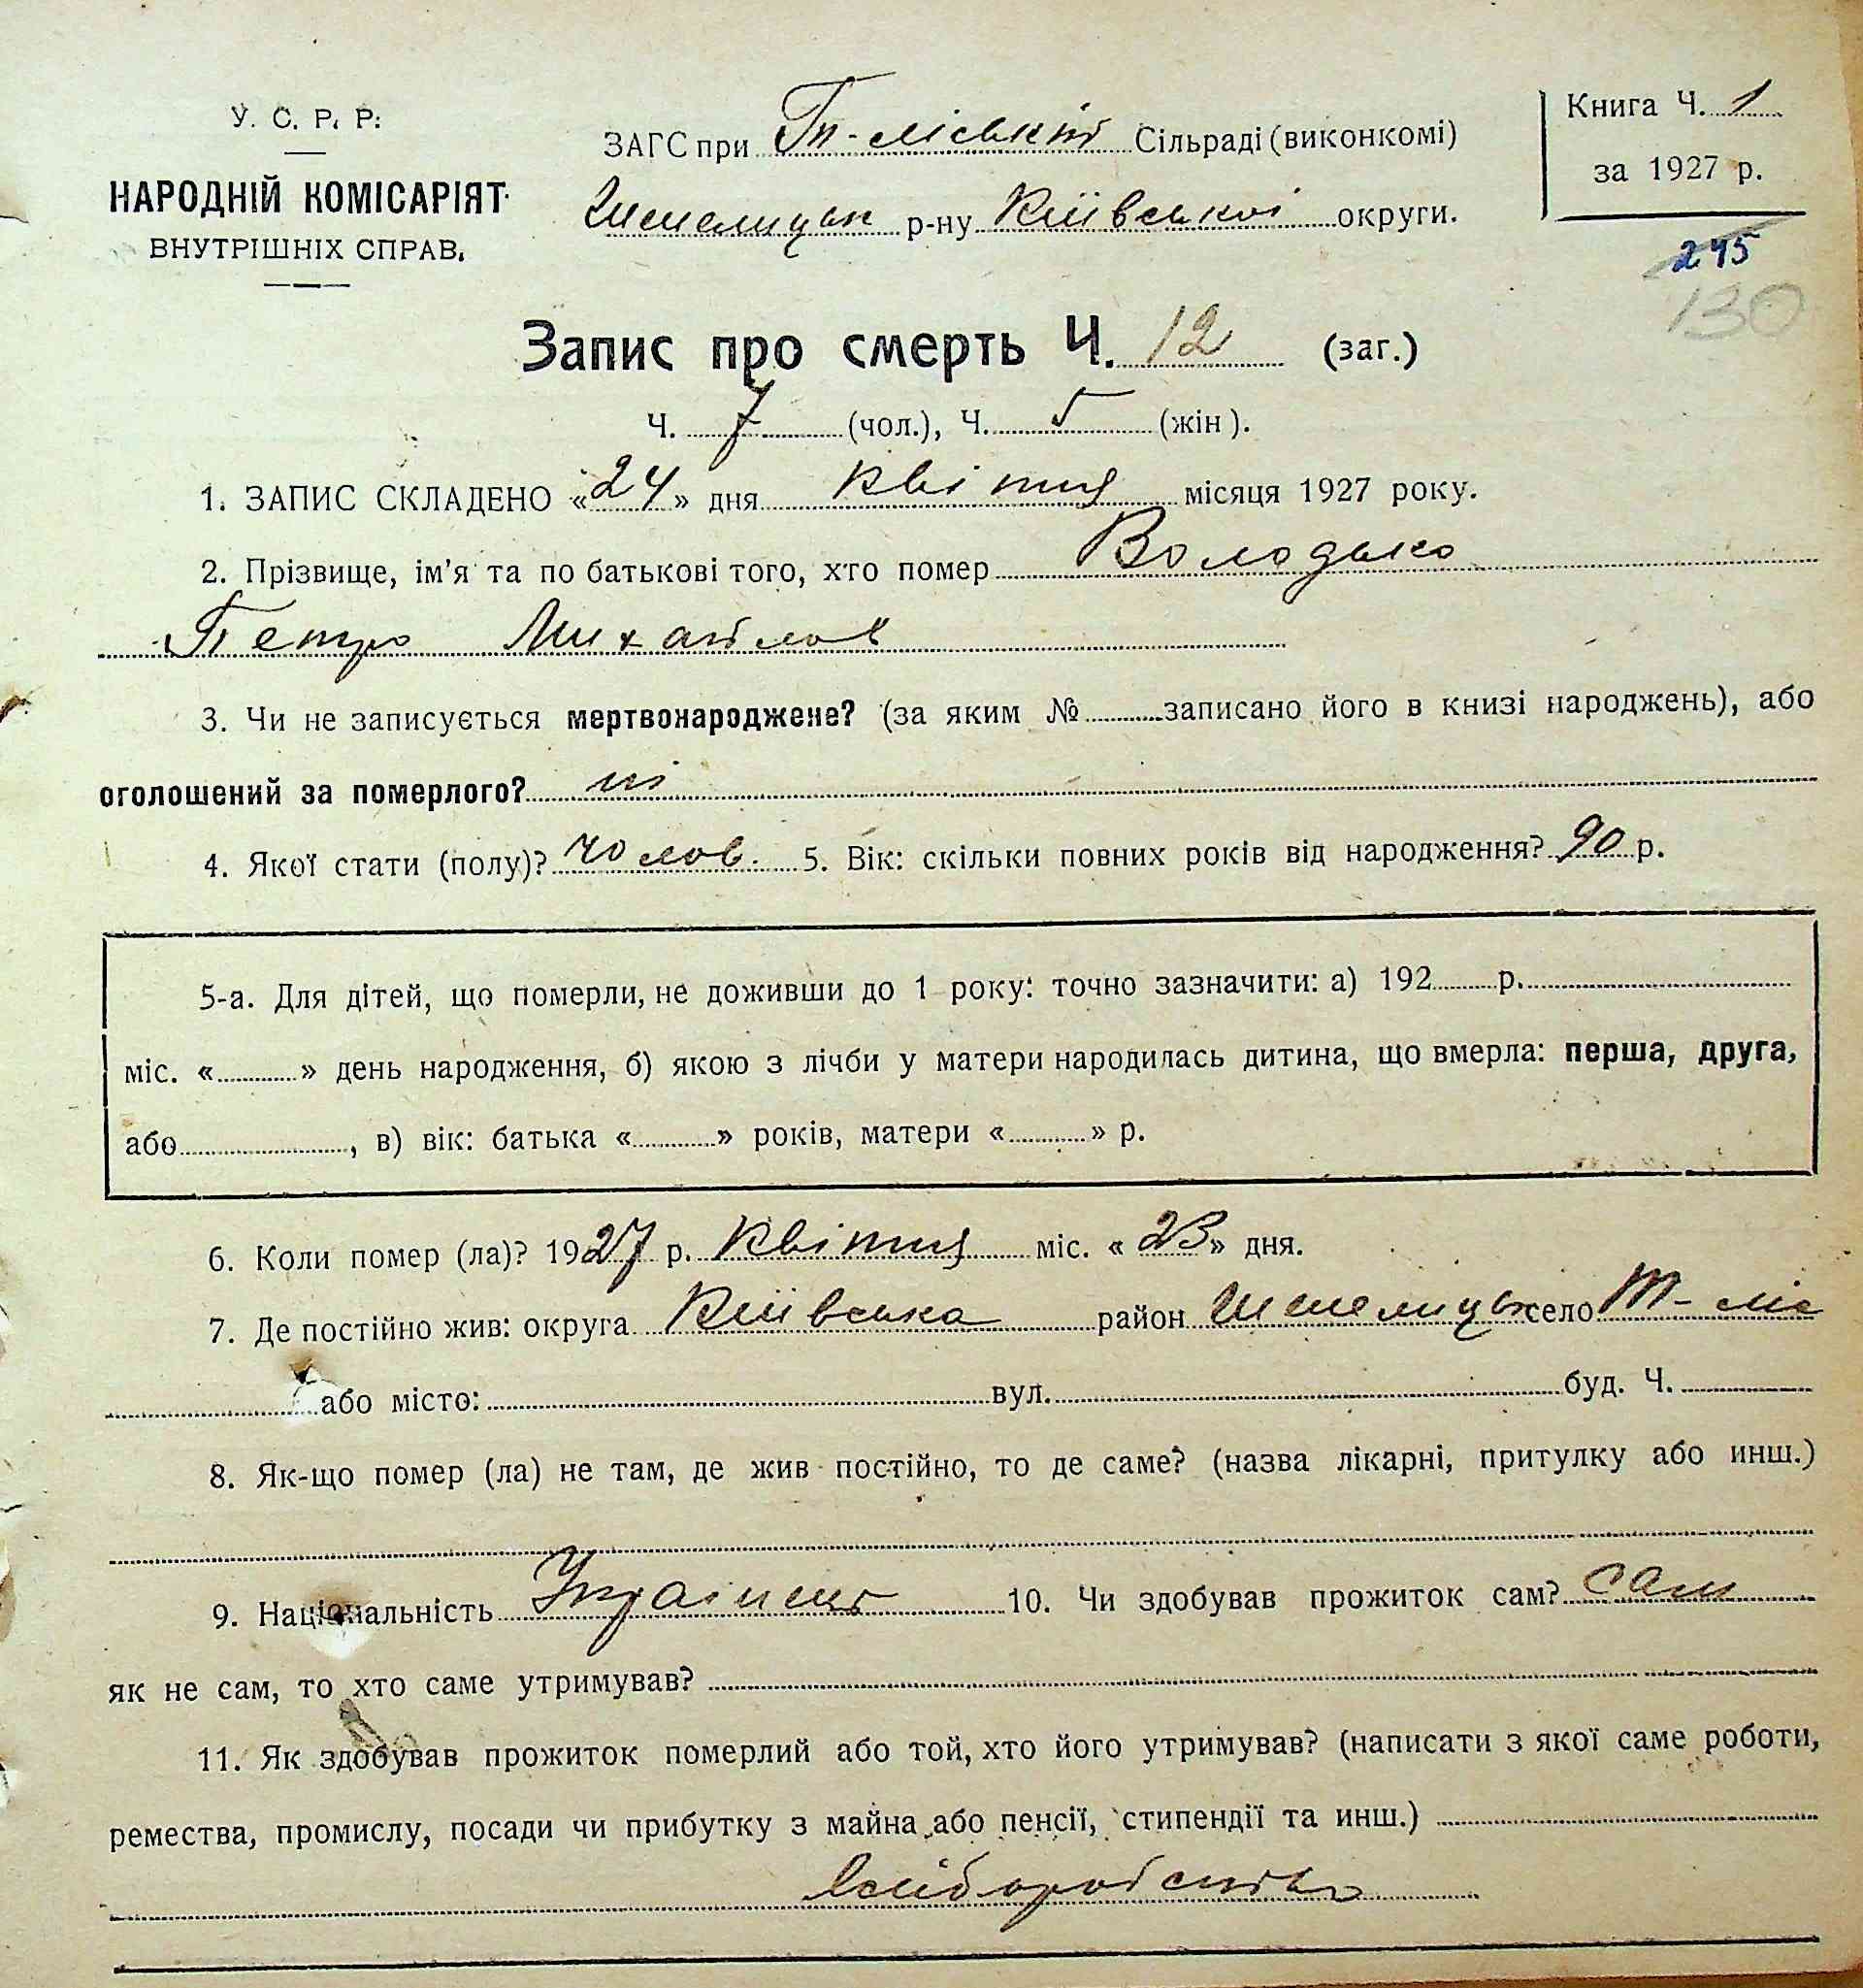 У. С. Р. Р.
НАРОДНІЙ КОМІСАРІЯТ
ВНУТРІШНІХ СПРАВ.
ЗАГС при Тп-ліській Сільраді (виконкомі)
Шемелицьк р-ну Київської округи.
Книга Ч. 1
за 1927 р.
245
130
Запис про смерть Ч. 12 (заг.)
Ч. 7 (чол.), Ч. 5 (жін).
1. ЗАПИС СКЛАДЕНО «24» дня квітня місяця 1927 року.
2. Прізвище, ім'я та по батькові того, хто помер Володько
Петро Михайлов
3. Чи не записується мертвонароджене? (за яким № записано його в книзі народжень), або
оголошений за померлого? ні
4. Якої стати (полу)? чолов. 5. Вік: скільки повних років від народження? 90 р.
5-а. Для дітей, що померли, не доживши до 1 року: точно зазначити: а) 192 р.
міс. « » день народження, б) якою з лічби у матери народилась дитина, що вмерла: перша, друга,
або , в) вік: батька « » років, матери « » р.
6. Коли помер (ла)? 1927 р. Квітня міс. «23» дня.
7. Де постійно жив: округа Київська район село
або місто: вул. буд. Ч.
8. Як-що помер (ла) не там, де жив постійно, то де саме? (назва лікарні, притулку або инш.)
9. Національність Українець 10. Чи здобував прожиток сам? сам
як не сам, то хто саме утримував?
11. Як здобував прожиток померлий або той, хто його утримував? (написати з якої саме роботи,
ремества, промислу, посади чи прибутку з майна або пенсії, стипендії та инш.)
хліборобство